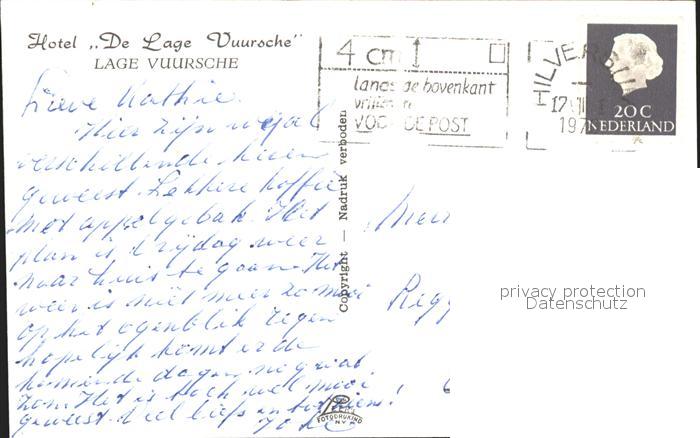 Hotel „De Lage Vuursche”
LAGE VUURSCHE
4 cm
langs de bovenkant
vrijlaten
VOOR DE POST
HILVERSUM
17
197
20 C
NEDERLAND
Lieve Kathie.
Hier zijn we al
verschillende keren
geweest. Lekkere koffie
met appelgebak. Het
plan is vrijdag weer
naar huis te gaan. Het
weer is niet meer zo mooi
op het ogenblik regen
hopelijk komt er de
komende dagen nog wat
zon. Het is toch wel mooi
geweest. Veel liefs en tot ziens!
Copyright — Nadruk verboden
Regg
privacy protection
Datenschutz
FOTODRUKIND
N.V.